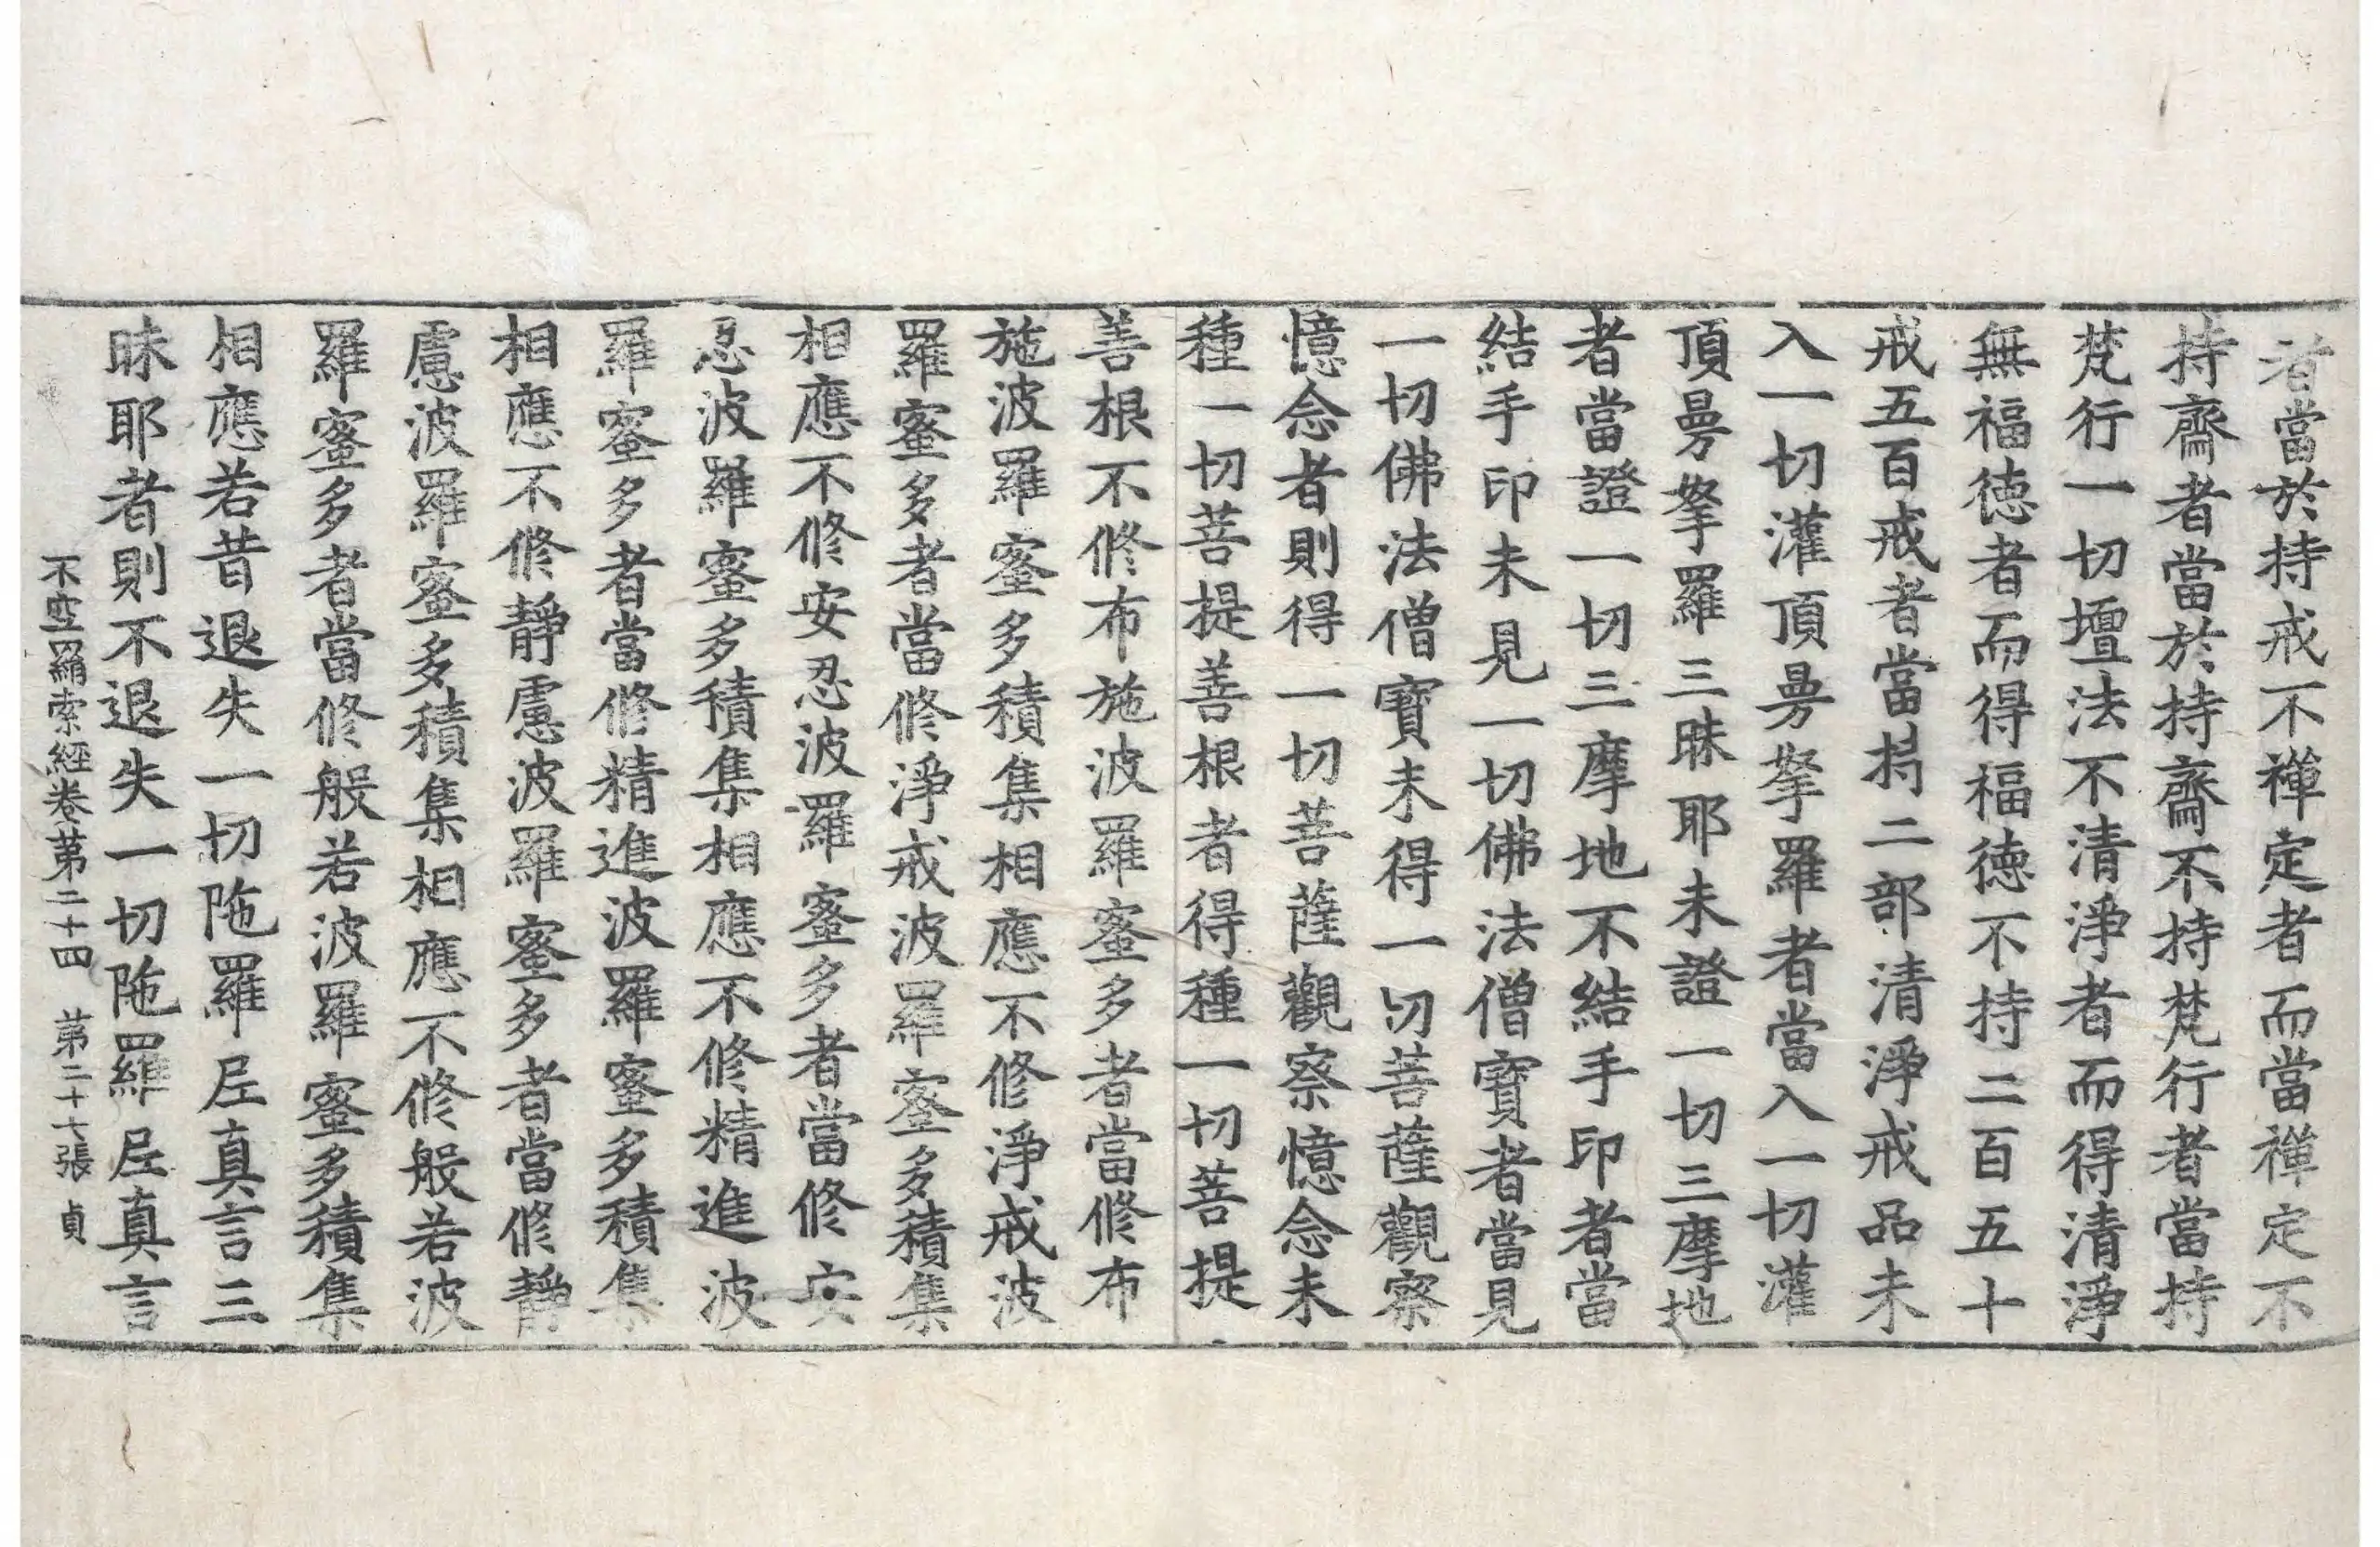 者當於持戒不禪定者而當禪定不
持齋者當於持齋不持梵行者當持
梵行一切壇法不清淨者而得清淨
無福德者而得福德不持二百五十
戒五百戒者當持二部清淨戒品未
入一切灌頂曼拏羅者當入一切灌
頂曼拏羅三昧耶未證一切三摩地
者當證一切三摩地不結手印者當
結手印未見一切佛法僧寶者當見
一切佛法僧寶未得一切菩薩觀察
憶念者則得一切菩薩觀察憶念未
種一切菩提善根者得種一切菩提
善根不修布施波羅蜜多者當修布
施波羅蜜多積集相應不修淨戒波
羅蜜多者當修淨戒波羅蜜多積集
相應不修安忍波羅蜜多者當修安
忍波羅蜜多積集相應不修精進波
羅蜜多者當修精進波羅蜜多積集
相應不修靜慮波羅蜜多者當修靜
慮波羅蜜多積集相應不修般若波
羅蜜多者當修般若波羅蜜多積集
相應若昔退失一切陁羅尼真言三
昧耶者則不退失一切陁羅尼真言
不空羂索經卷苐二十四 苐二十七張 貞